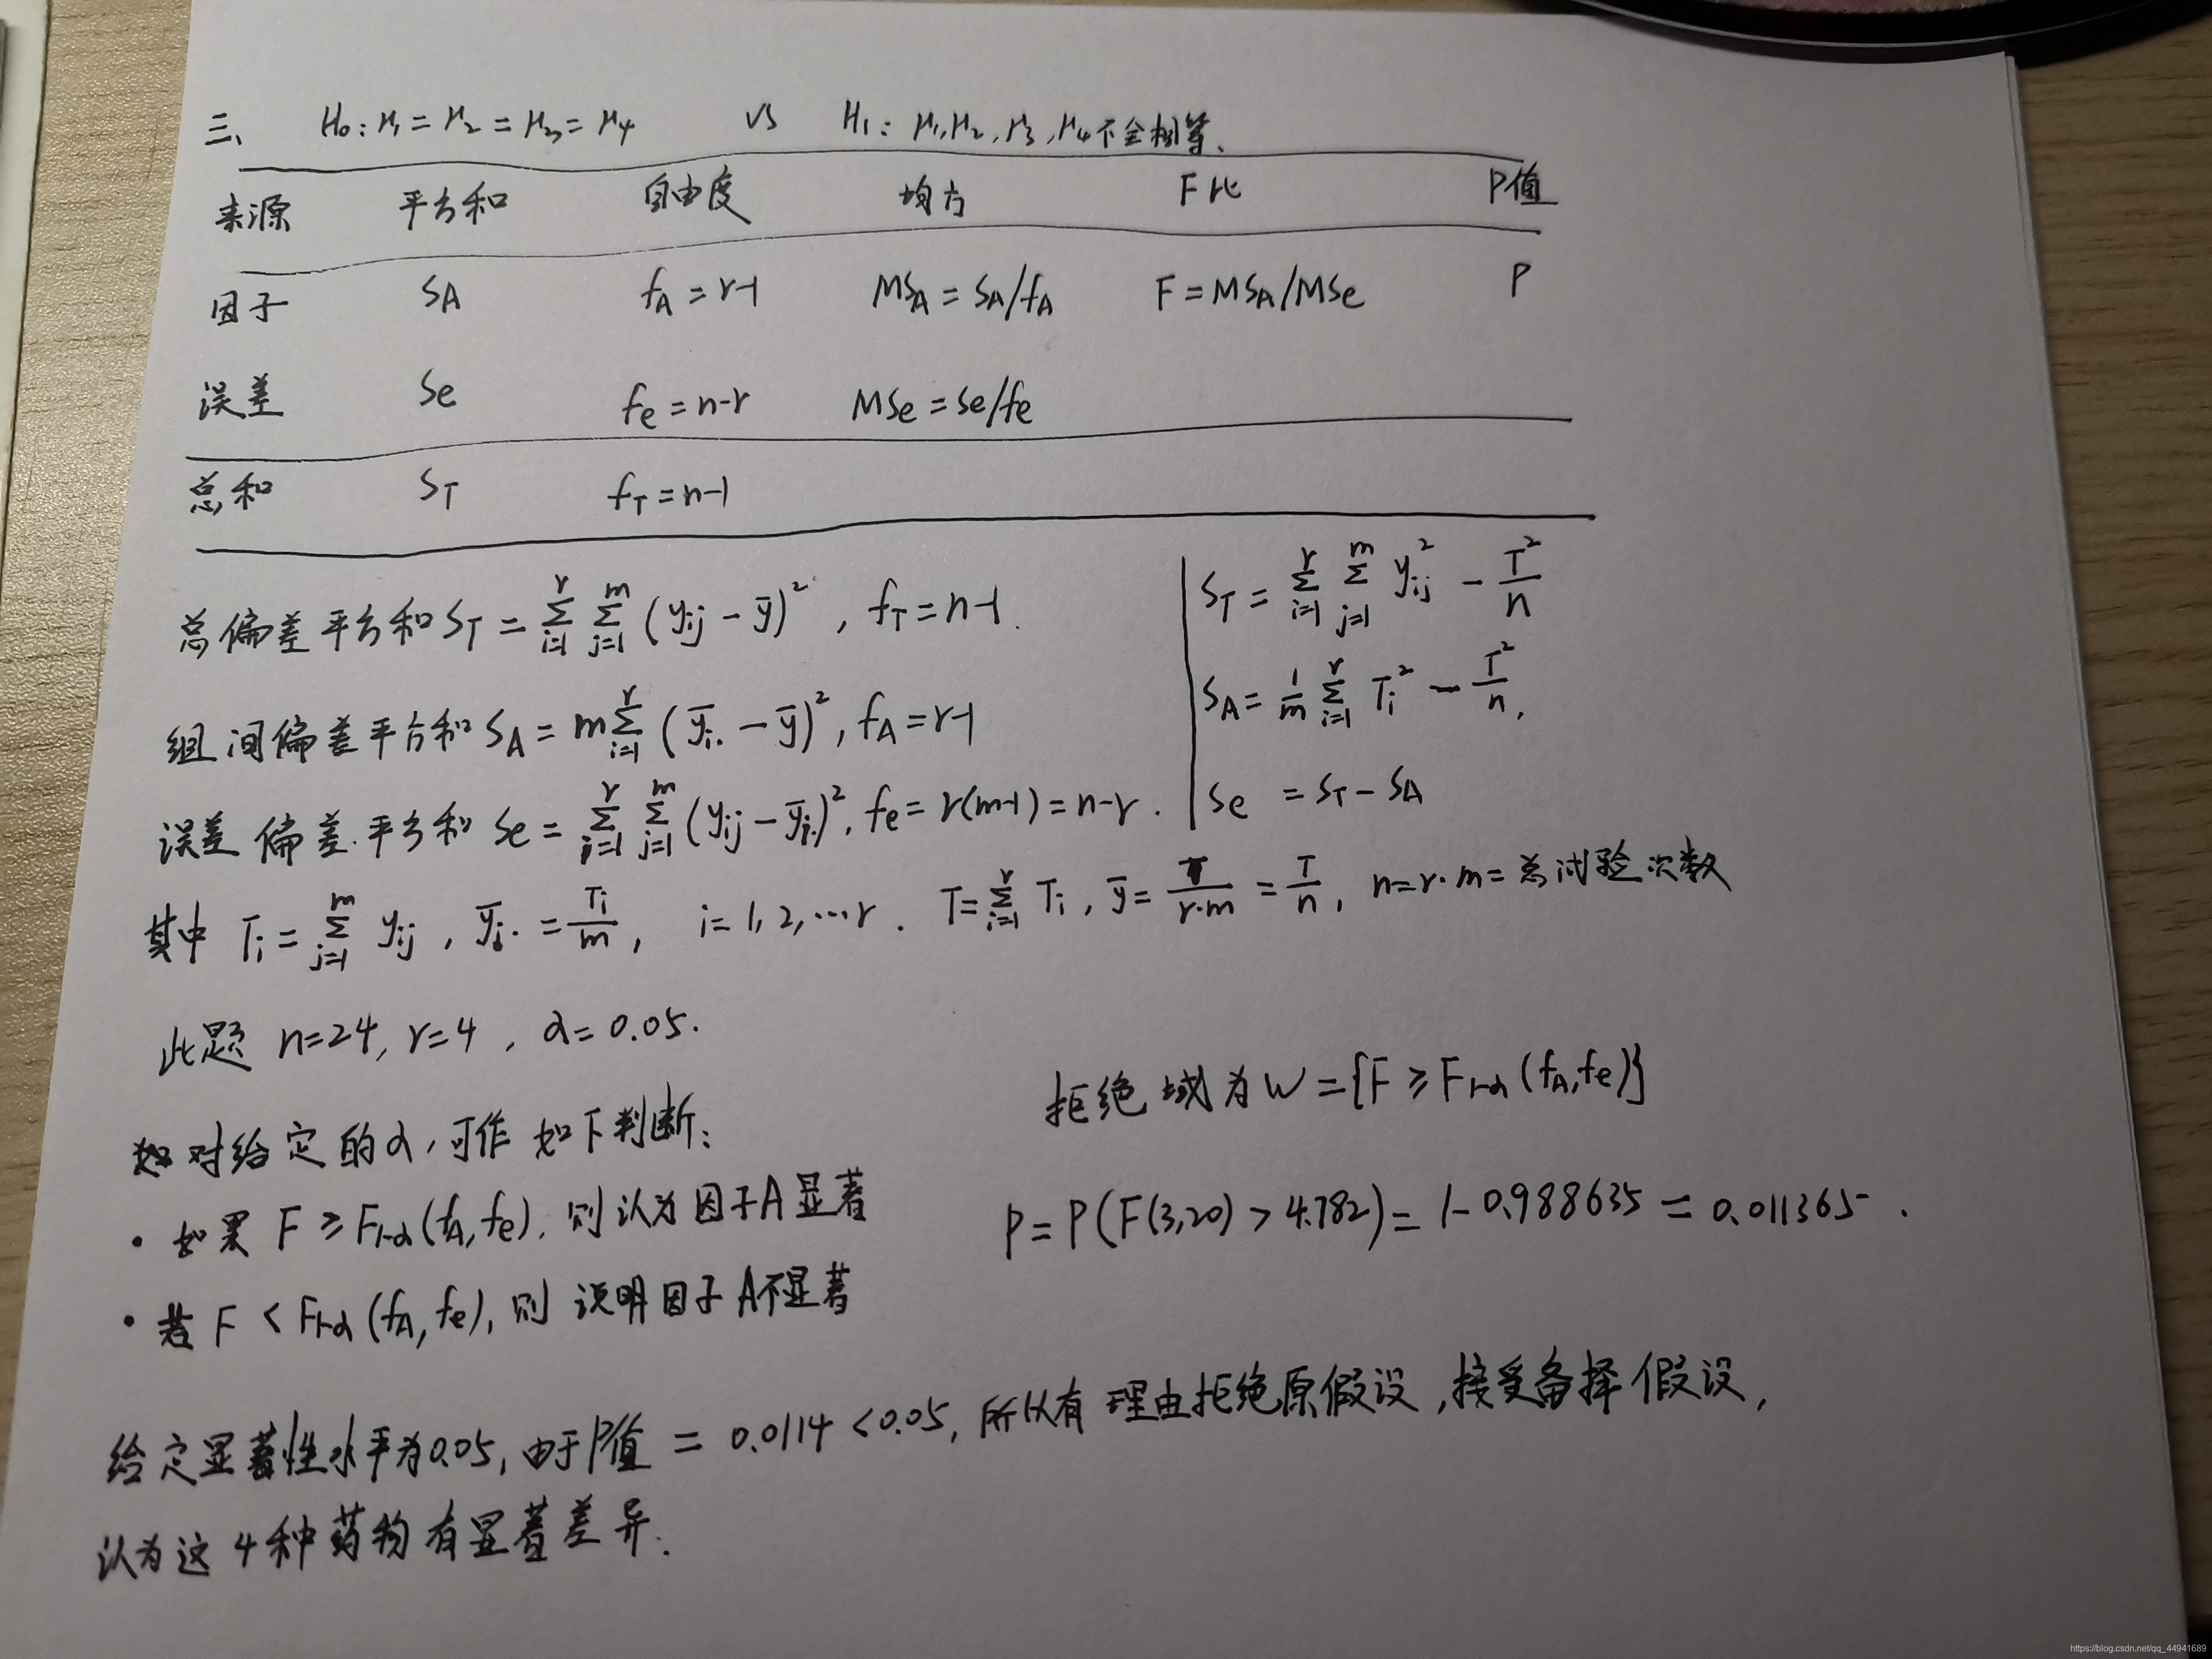 三、 H₀: μ₁ = μ₂ = μ₃ = μ₄ VS H₁: μ₁, μ₂, μ₃, μ₄不全相等、
来源 平方和 自由度 均方 F比 P值
因子 SA fA = r-1 MSA = SA/fA F = MSA/MSe P
误差 Se fe = n-r MSe = Se/fe
总和 ST fT = n-1
总偏差平方和 ST = Σ(i=1→r) Σ(j=1→m) (yij - ȳ)², fT = n-1.
组间偏差平方和 SA = m Σ(i=1→r) (ȳi. - ȳ)², fA = r-1
误差偏差平方和 Se = Σ(i=1→r) Σ(j=1→m) (yij - ȳi.)², fe = r(m-1) = n-r.
ST = Σ(i=1→r) Σ(j=1→m) yij² - T²/n
SA = 1/m Σ(i=1→r) Ti² - T²/n,
Se = ST - SA
其中 Ti = Σ(j=1→m) yij, ȳi. = Ti/m, i = 1, 2, … r. T = Σ(i=1→r) Ti, ȳ = T/(r·m) = T/n, n = r·m = 总试验次数
此题 n=24, r=4, α=0.05.
对给定的α, 可作如下判断:
• 如果 F ≥ F1-α(fA, fe), 则认为因子A显著
• 若 F < F1-α(fA, fe), 则说明因子A不显著
拒绝域为 W = {F ≥ F1-α(fA, fe)}
P = P(F(3,20) > 4.782) = 1 - 0.988635 = 0.011365.
给定显著性水平为0.05, 由于P值 = 0.0114 < 0.05, 所以有理由拒绝原假设, 接受备择假设,
认为这4种药物有显著差异.
https://blog.csdn.net/qq_44941689